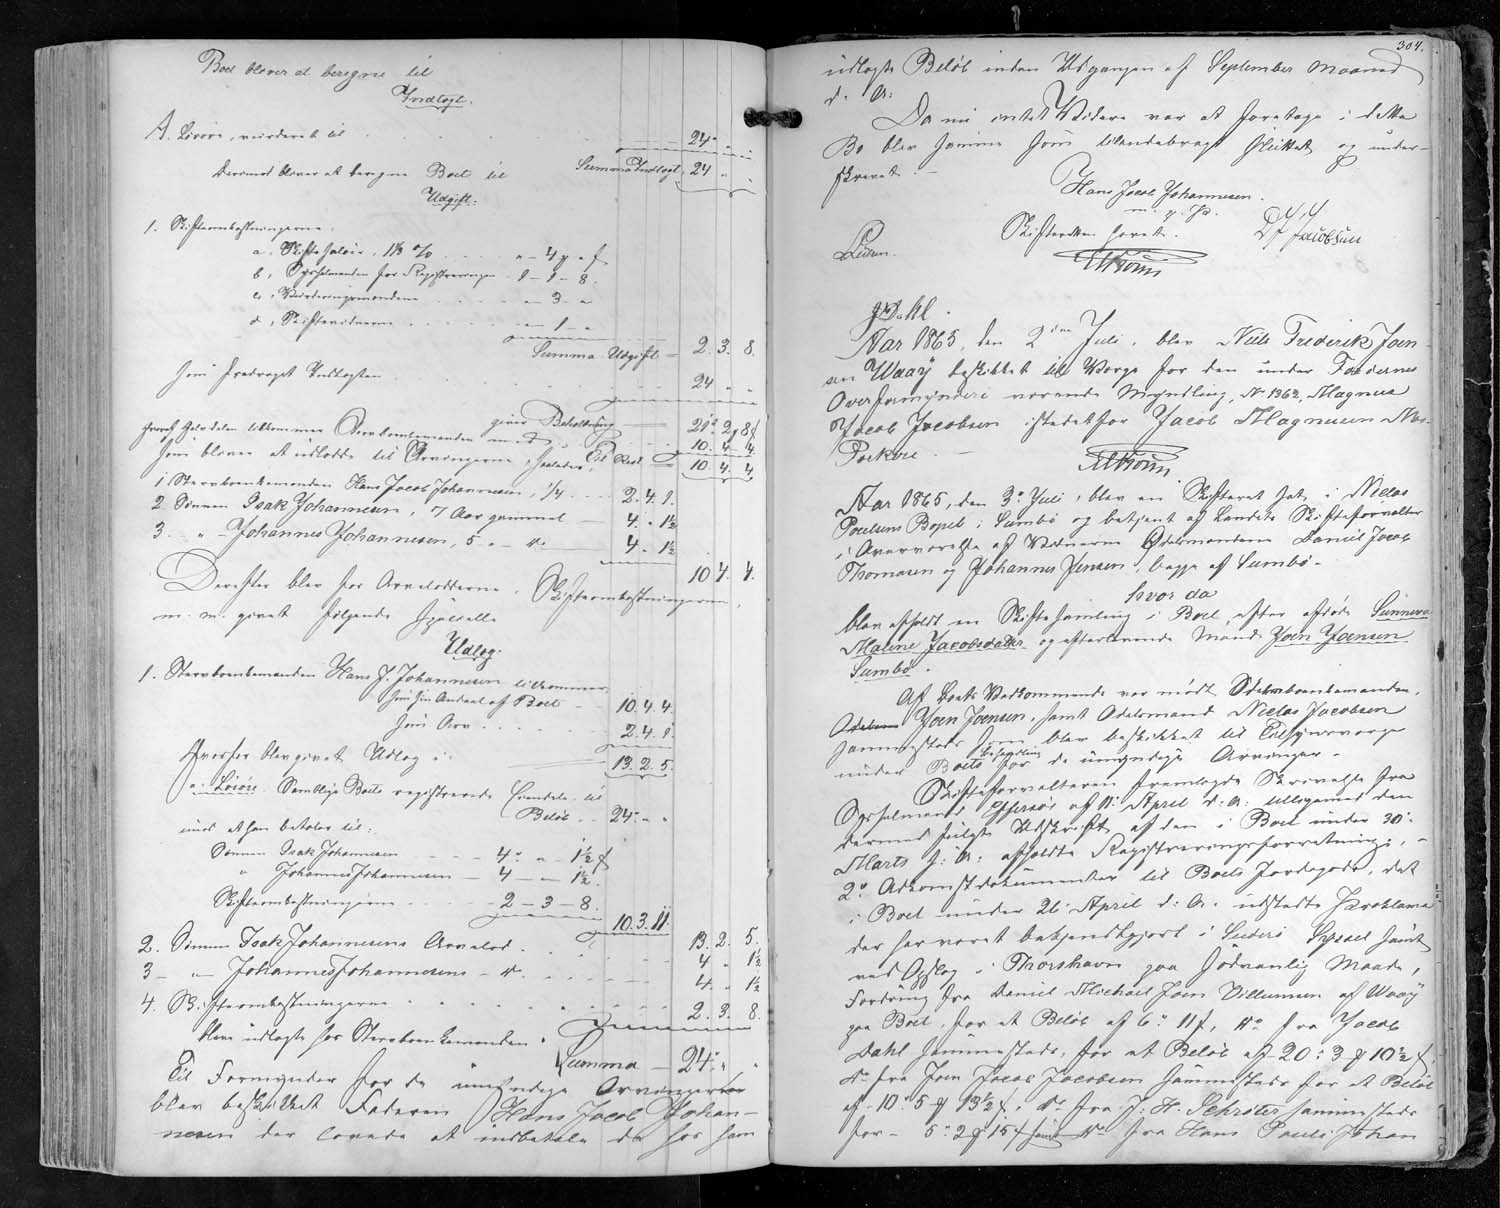 Boet bliver at beregne til
Indtægt.
A. Løsøre, vurderet til 24 " "
Summa Indtægt 24 " "
Dernæst bliver at beregne Boet til
Udgift.
1. Skifteomkostningerne:
a, Skiftesalair, 1⅓ % " - 4 ʒ " ß
b, Sysselmanden for Registreringen 1 - 1 - 8.
c, Vurderingsmændene " - 3 - "
d, Skiftevidnerne " - 1 - "
Summa Udgift 2. 3. 8.
som fradraget Indtægten 24 " "
giver Beholdning 21 2 8
hvoraf Halvdelen tilkommer Stervboenkemanden med 10. 4. 4.
Til Rest 10. 4. 4.
som bliver at udlodde til Arvingerne, saaledes:
1 Stervboenkemanden Hans Jacob Johannesen, ¼ 2. 4. 1.
2. Sønnen Isak Johannesen, 7 Aar gammel 4. " 1½
3. " Johannes Johannesen, 5 " - do 4 - 1½
10 4. 4.
Derefter blev for Arvelodderne, Skifteomkostningerne,
m. m. givet følgende specielle
Udlæg.
1. Stervboenkemanden Hans J. Johannesen tilkommer
som sin Andeel af Boet 10. 4. 4.
som Arv 2. 4. 1.
13. 2. 5.
hvorfor blev givet Udlæg i:
a. Løsøre. Samtlige Boets registrerede Eiendele til
Beløb 24 " "
imod at han betaler til:
Sønnen Isak Johannesen 4 " " 1½ ß
" Johannes Johannesen 4 - " 1½.
Skifteomkostningerne 2 - 3 - 8.
10. 3. 11.
13. 2. 5.
2. Sønnen Isak Johannesens Arvelod 4 " 1½
3 - " Johannes Johannesens - do. 4. " 1½
4. Skifteomkostningerne 2. 3. 8.
bleve udlagte hos Stervboenkemanden.
Summa - 24 " "
Til Formynder for de umyndige Arvinger
blev beskikket Faderen Hans Jacob Johan-
nesen der lovede at indbetale de hos ham
304.
udlagte Beløb inden Udgangen af September Maaned
d. A.
Da nu intet Videre var at foretage i dette
Bo blev samme som tilendebragt sluttet og under-
skrevet. -
Hans Jacob Johannesen.
m. f. P.
Skifteretten hævet.
D J Jacobsen
Aar 1865, den 2den Juli, blev Niels Frederik Joen-
sen Waaÿ beskikket til Værge for den under Færøernes
Overformynderi værende Myndling, No 1362, Magnus
Jacob Jacobsen istedetfor Jacob Magnusen Nos-
Porkere. -
Aar 1865, den 3de Juli, blev en Skifteret sat i Niclas
Poulsens Bopæl i Sumbø og betjent af Landets Skifteforvalter
i Overværelse af Vidnerne Odelsmændene Daniel Jacob
Thomasen og Johannes Jensen, begge af Sumbø. -
hvor da
blev afholdt en Skiftesamling i Boet efter afdøde Sunneva
Malene Jacobsdatter og efterlevende Mand Joen Joensen
Sumbø.
Af Boets Vedkommende var mødt Stervboenkemanden,
Joen Joensen, samt Odelsmand Niclas Jacobsen
sammesteds som blev beskikket til Tilsynsværge
under Boets Behandling for de umyndige Arvinger. -
Skifteforvalteren fremlagde Skrivelse fra
Sysselmand Effersøe af 11. April d. A. tilligemed den
dermed fulgte Udskrift af den i Boet under 30.
Marts s. A. afholdte Registreringsforretning, -
2o Adkomstdokumenter til Boets Jordegods, det
i Boet under 26 April d. A. udstedte Proklama
der har været bekjendtgjort i Suderø Syssel samt
ved Opslag i Thorshavn paa sædvanlig Maade,
Fordring fra Daniel Michael Joen Villumsen af Waaÿ
paa Boet, for et Beløb af 6 " 11 ß, do fra Jacob
Dahl sammesteds, for et Beløb af 20 : 3 ʒ 10½ ß
do fra Joen Jacob Jacobsen sammesteds for et Beløb
af - 10 : 5 ʒ 13½ ß, do fra J. H. Schrøter sammesteds
for - 5 : 2 ʒ 15 ß samt do fra Hans Pauli Johan